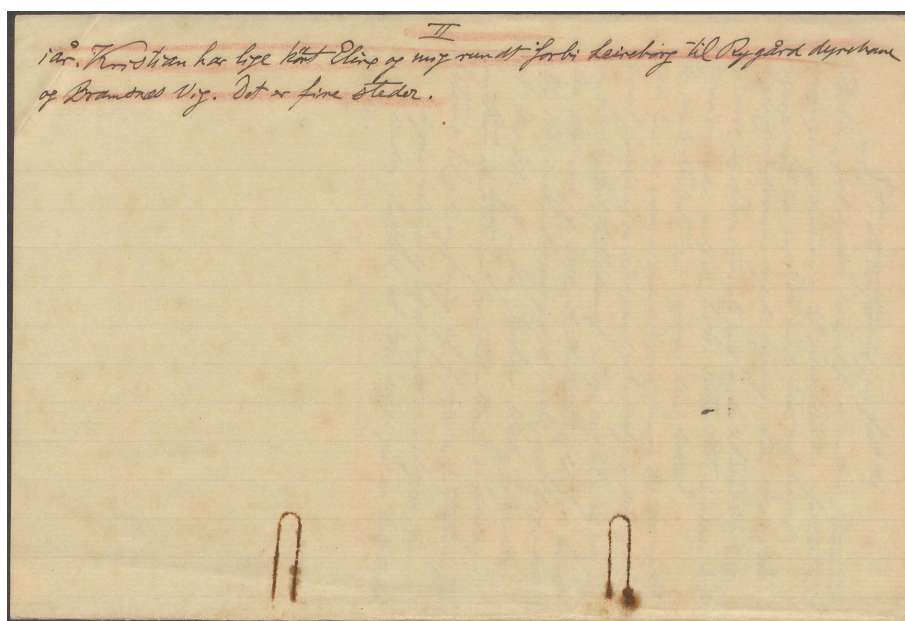 II
i år. Kristian har lige kört Eling og mig rundt forbi Leireborg til Rygård dyrehave
og Bramsnæs Vig. Det er fine steder.